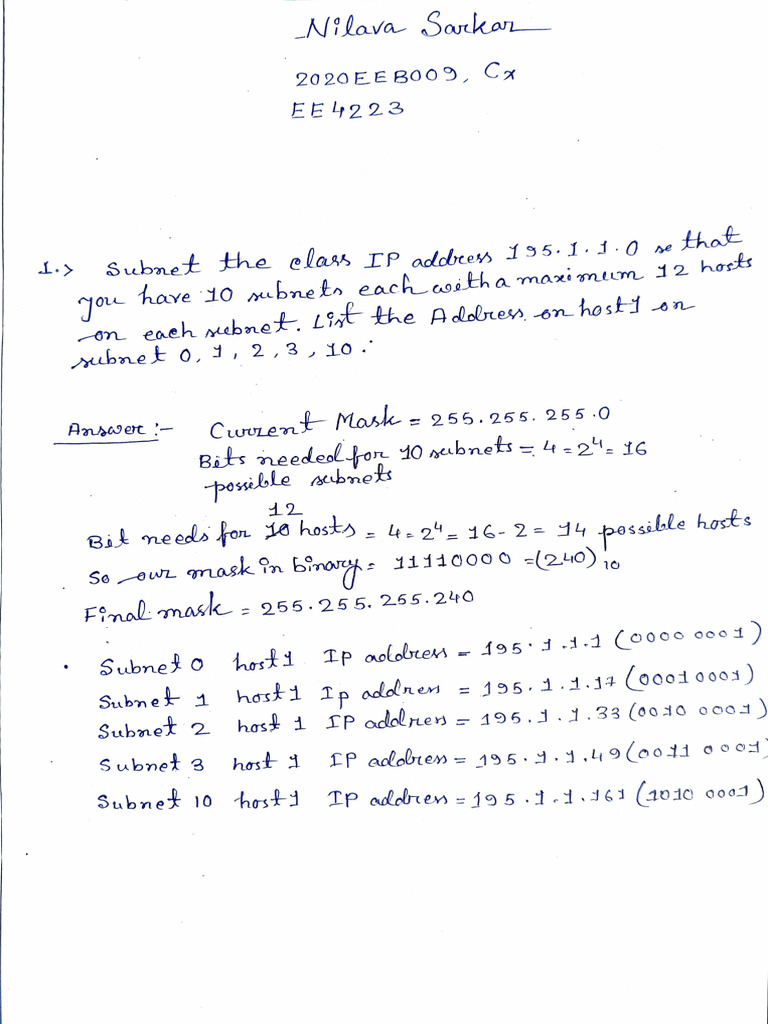 Nilava Sarkar
2020EEB009, Cx
EE4223
1.> Subnet the class IP address 195.1.1.0 so that
you have 10 subnets each with a maximum 12 hosts
on each subnet. List the Address on host 1 on
subnet 0, 1, 2, 3, 10.
Answer :- Current Mask = 255.255.255.0
Bits needed for 10 subnets = 4 = 2⁴ = 16
possible subnets
12
Bit needs for hosts = 4 = 2⁴ = 16 - 2 = 14 possible hosts
So our mask in binary = 11110000 = (240)₁₀
Final mask = 255.255.255.240
Subnet 0 host 1 Ip address = 195.1.1.1 (0000 0001)
Subnet 1 host 1 Ip address = 195.1.1.17 (0001 0001)
Subnet 2 host 1 IP address = 195.1.1.33 (0010 0001)
Subnet 3 host 1 IP address = 195.1.1.49 (0011 0001)
Subnet 10 host 1 IP address = 195.1.1.161 (1010 0001)